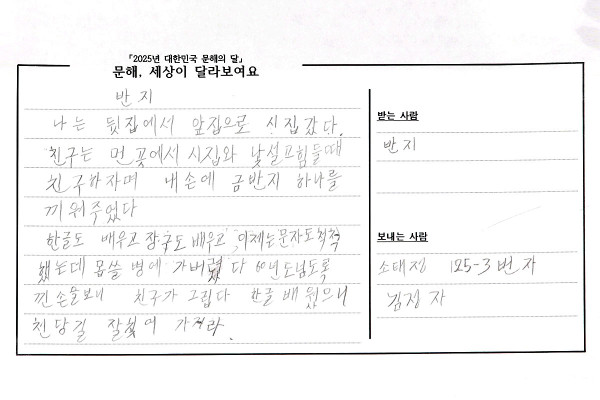 「2025년 대한민국 문해의 달」
문해, 세상이 달라보여요
반지
나는 뒷집에서 앞집으로 시집갔다.
친구는 먼 곳에서 시집와 낯설고 힘들때
친구하자며 내손에 금반지 하나를
끼워주었다
한글도 배우고 장구도 배우고, 이제는 문자도 척척
했는데 몹쓸 병에 가버렸다 60년도넘도록
낀손을보니 친구가 그립다 한글배웠으니
천당길 잘찾여 가거라.
받는 사람
반지
보내는 사람
소태정 125-3번자
김정자